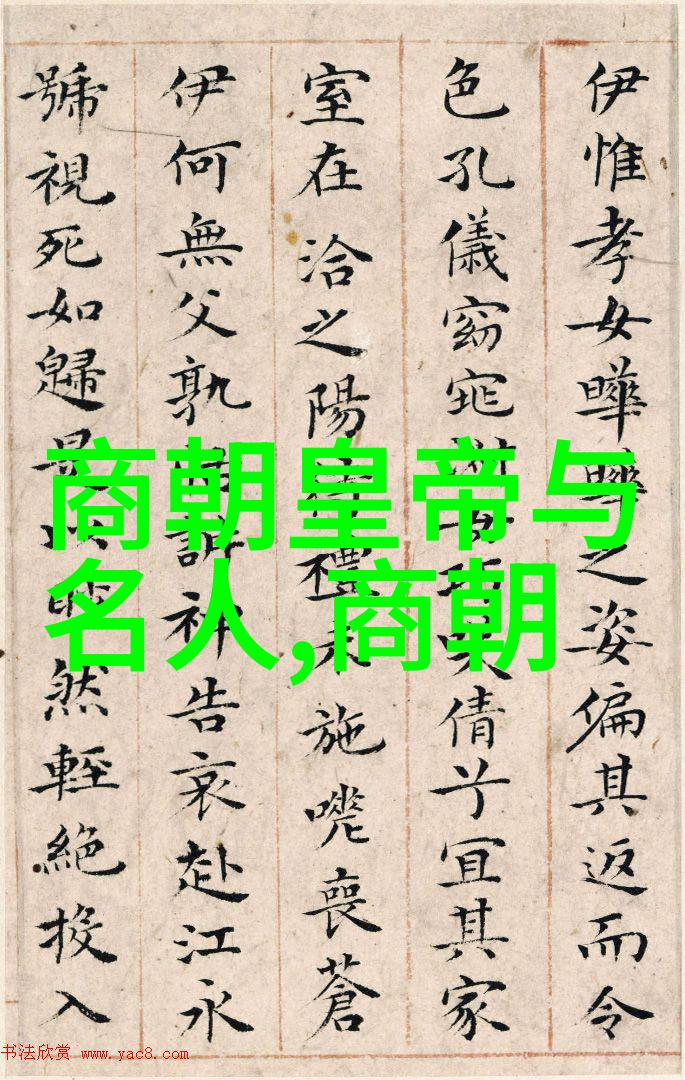 伊惟孝女曄曄之姿偏其返而令
色孔儀窈窕淑女巧笑倩兮宜其家
室在洽之陽待禮未施嗟喪蒼
伊何無父孰怙訴神告哀赴江永
號視死如歸是以眇然輕絕投入
商朝皇帝与
名人,商朝
书法欣赏 www.yac8.com